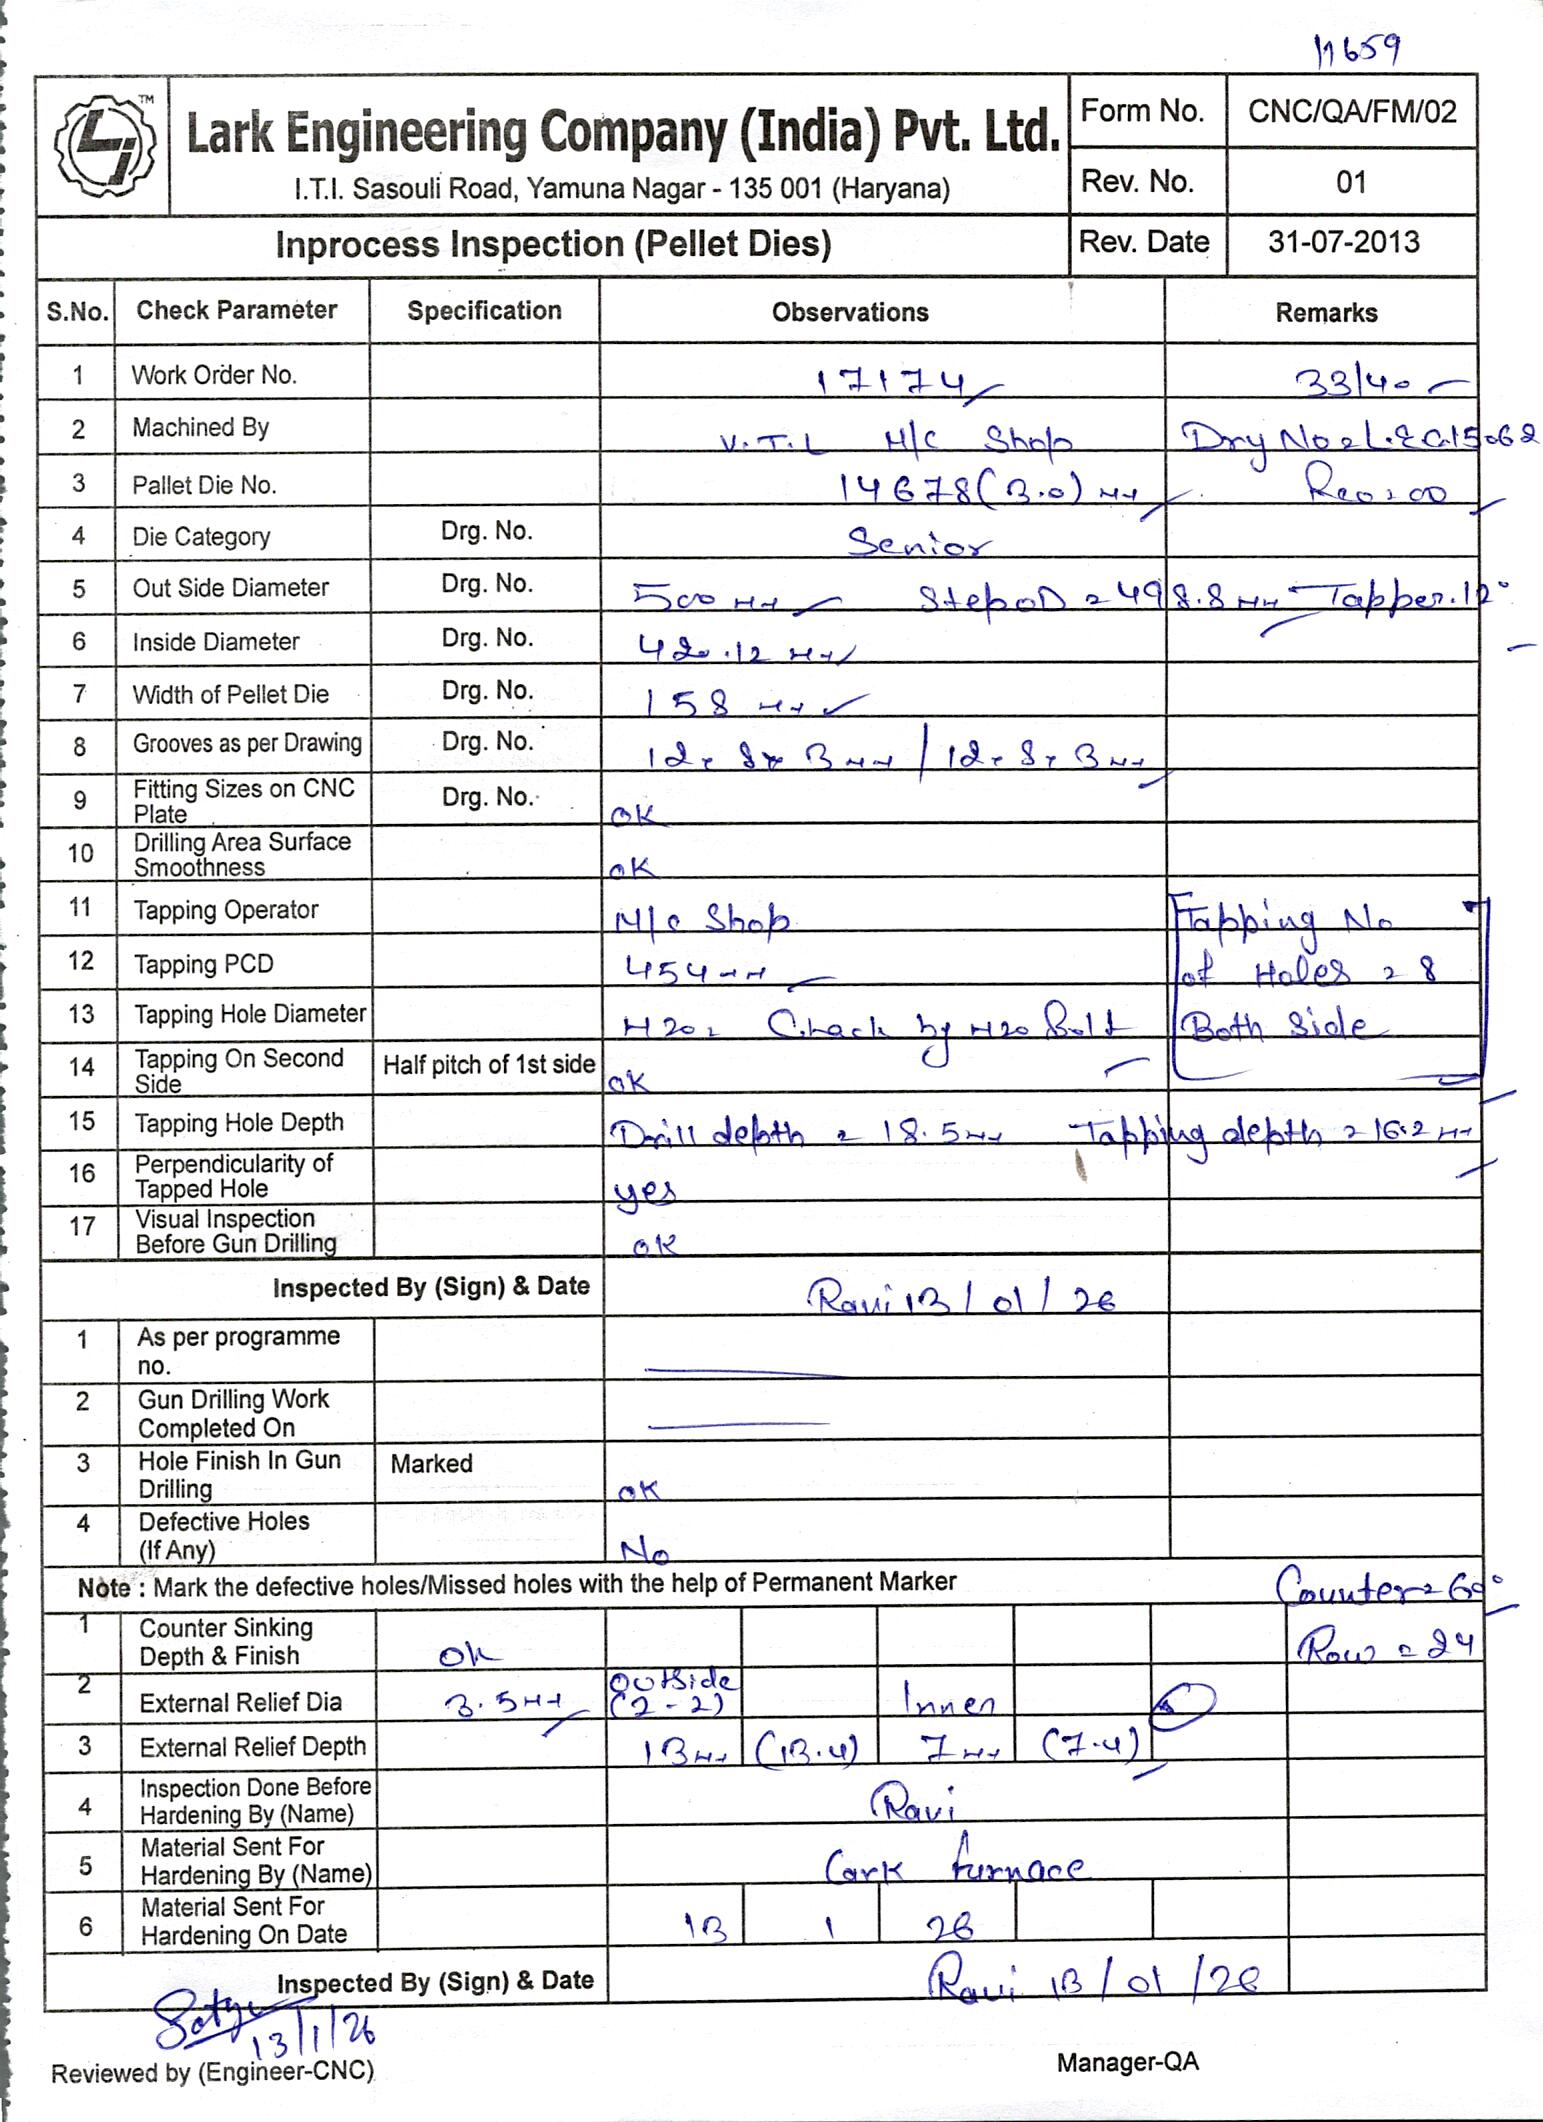 11659
TM
Lark Engineering Company (India) Pvt. Ltd.
I.T.I. Sasouli Road, Yamuna Nagar - 135 001 (Haryana)
Form No. CNC/QA/FM/02
Rev. No. 01
Inprocess Inspection (Pellet Dies) Rev. Date 31-07-2013
S.No. Check Parameter Specification Observations Remarks
1 Work Order No. 17174 33/40
2 Machined By V.T.L M/c Shop
3 Pallet Die No. 14678(3.0) mm
4 Die Category Drg. No. Senior
5 Out Side Diameter Drg. No. 500 mm Step OD = 498.8 mm Tapper.12°
6 Inside Diameter Drg. No. 420.12 mm
7 Width of Pellet Die Drg. No. 158 mm
8 Grooves as per Drawing Drg. No. 12 x 8 x 3 mm / 12 x 8 x 3 mm
9 Fitting Sizes on CNC Plate Drg. No. OK
10 Drilling Area Surface Smoothness OK
11 Tapping Operator M/c Shop Tapping No
12 Tapping PCD 454 mm of Holes = 8
13 Tapping Hole Diameter M20 = Chack by M20 Bolt Both Side
14 Tapping On Second Side Half pitch of 1st side OK
15 Tapping Hole Depth Drill depth = 18.5 mm Tapping depth = 16.2 mm
16 Perpendicularity of Tapped Hole yes
17 Visual Inspection Before Gun Drilling OK
Inspected By (Sign) & Date Ravi 13/01/26
1 As per programme no.
2 Gun Drilling Work Completed On
3 Hole Finish In Gun Drilling Marked OK
4 Defective Holes (If Any) No
Note : Mark the defective holes/Missed holes with the help of Permanent Marker Counter = 60°
1 Counter Sinking Depth & Finish OK Row = 24
2 External Relief Dia 3.5 mm Outside (2-2) Inner
3 External Relief Depth 13 mm (13.4) 7 mm (7.4)
4 Inspection Done Before Hardening By (Name) Ravi
5 Material Sent For Hardening By (Name) Lark furnace
6 Material Sent For Hardening On Date 13 1 26
Inspected By (Sign) & Date Ravi 13/01/26
13/1/26
Reviewed by (Engineer-CNC) Manager-QA